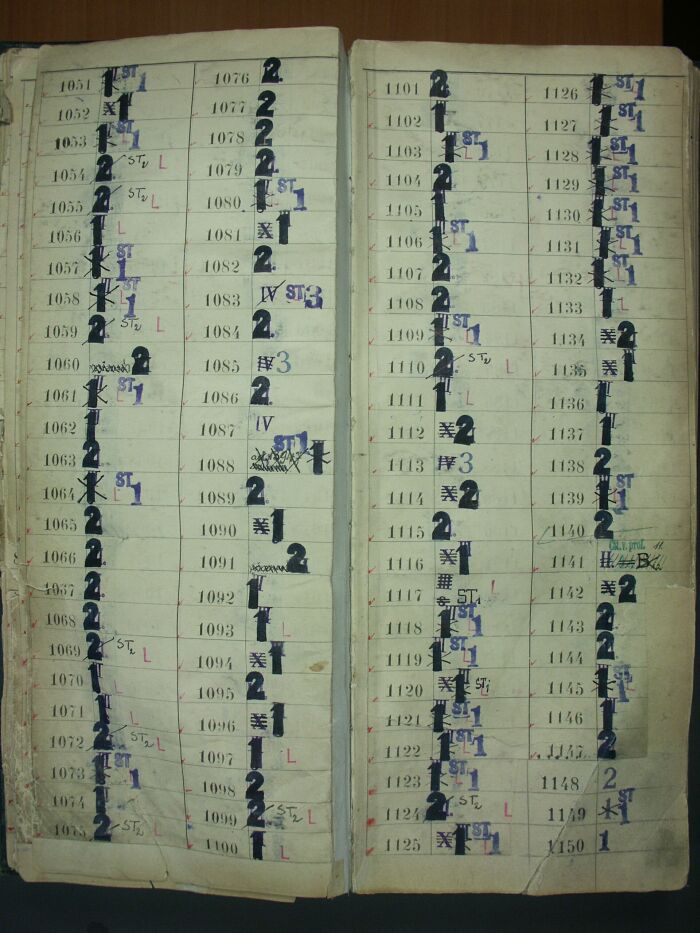 1051 1 ST 1
1052 X 1
1053 1 ST L 1
1054 2 ST2 L
1055 2 ST2 L
1056 1 L
1057 1 ST 1
1058 1 L ST 1
1059 2 ST2 L
1060 2
1061 1 L ST 1
1062 1
1063 2
1064 1 L ST 1
1065 2
1066 2
1067 2
1068 2
1069 2 ST2 L
1070 1 L
1071 1 L
1072 2 ST2 L
1073 1 ST 1
1074 1
1075 2 ST2 L
1076 2
1077 2
1078 2
1079 2
1080 1 L ST 1
1081 X 1
1082 2
1083 IV ST 3
1084 2
1085 IV 3
1086 2
1087 IV
1088 ST 1 1
1089 2
1090 X 1
1091 2
1092 1
1093 1 L
1094 X 1
1095 2
1096 X 1
1097 1 L
1098 2
1099 2 ST2 L
1100 1 L
1101 2
1102 1
1103 1 L ST 1
1104 2
1105 1
1106 1 L ST 1
1107 2
1108 2
1109 1 L ST 1
1110 2 ST2 L
1111 1 L
1112 X 2
1113 IV 3
1114 X 2
1115 2
1116 X 1
1117 ST1 L
1118 1 L ST 1
1119 1 L ST 1
1120 X 1 ST1 L
1121 1 ST 1
1122 1 L ST 1
1123 1 L ST 1
1124 2 ST2 L
1125 X 1 ST L 1
1126 1 ST 1
1127 1 ST 1
1128 1 ST L 1
1129 1 ST 1
1130 1 L ST 1
1131 1 L ST 1
1132 1 L ST 1
1133 1 L
1134 X 2
1135 X 1
1136 1
1137 1
1138 2
1139 1 L ST 1
1140 2
1141 II B
1142 X 2
1143 2
1144 2
1145 1 ST L 1
1146 1
1147 2
1148 2
1149 ST 1
1150 1